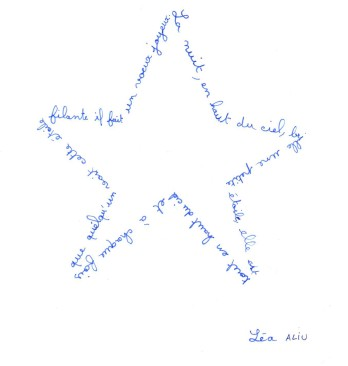 La nuit, en haut du ciel, brille une petite étoile, elle est tout en haut du ciel et à chaque fois que quelqu'un voit cette étoile filante il fait un voeux joyeux.
Léa ALIU